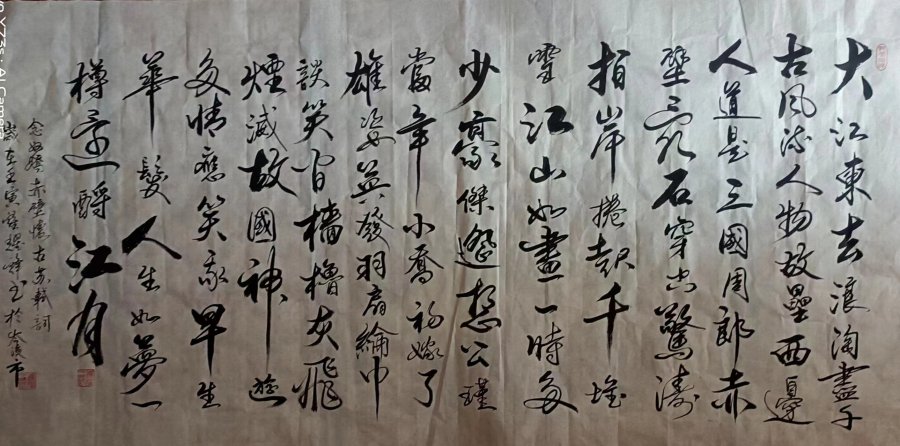 大江東去浪淘盡千
古風流人物故壘西邊
人道是三國周郎赤
壁亂石穿空驚濤
拍岸捲起千堆
雪江山如畫一時多
少豪傑遙想公瑾
當年小喬初嫁了
雄姿英發羽扇綸巾
談笑間檣櫓灰飛
煙滅故國神遊
多情應笑我早生
華髮人生如夢一
樽還酹江月
念奴嬌赤壁懷古蘇軾詞
歲在壬寅書於市
Y73s · AI Camera